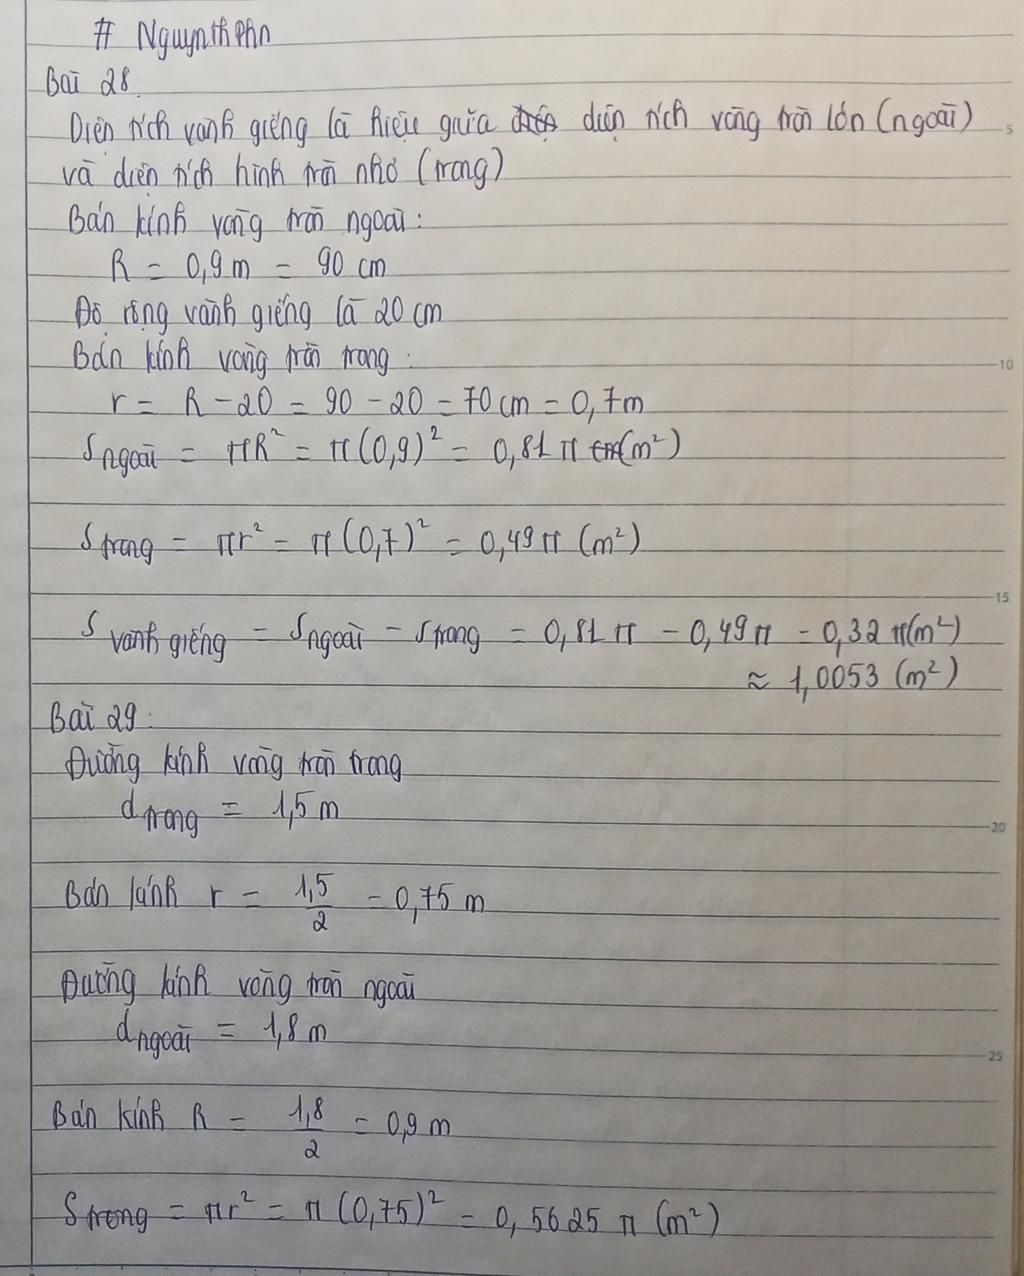 # Nguynthphn
Bài 28:
Diện tích vành giếng là hiệu giữa diện tích vòng tròn lớn (ngoài)
và diện tích hình tròn nhỏ (trong)
Bán kính vòng tròn ngoài:
R = 0,9 m = 90 cm
Độ rộng vành giếng là 20 cm
Bán kính vòng tròn trong:
r = R - 20 = 90 - 20 = 70 cm = 0,7m
S ngoài = πR² = π(0,9)² = 0,81 π (m²)
S trong = πr² = π(0,7)² = 0,49π (m²)
S vành giếng = S ngoài - S trong = 0,81 π - 0,49π = 0,32 π(m²)
≈ 1,0053 (m²)
Bài 29:
Đường kính vòng tròn trong
d trong = 1,5 m
Bán kính r = 1,5/2 = 0,75 m
Đường kính vòng tròn ngoài
d ngoài = 1,8 m
Bán kính R = 1,8/2 = 0,9 m
S trong = πr² = π (0,75)² = 0,5625 π (m²)
5
10
15
20
25